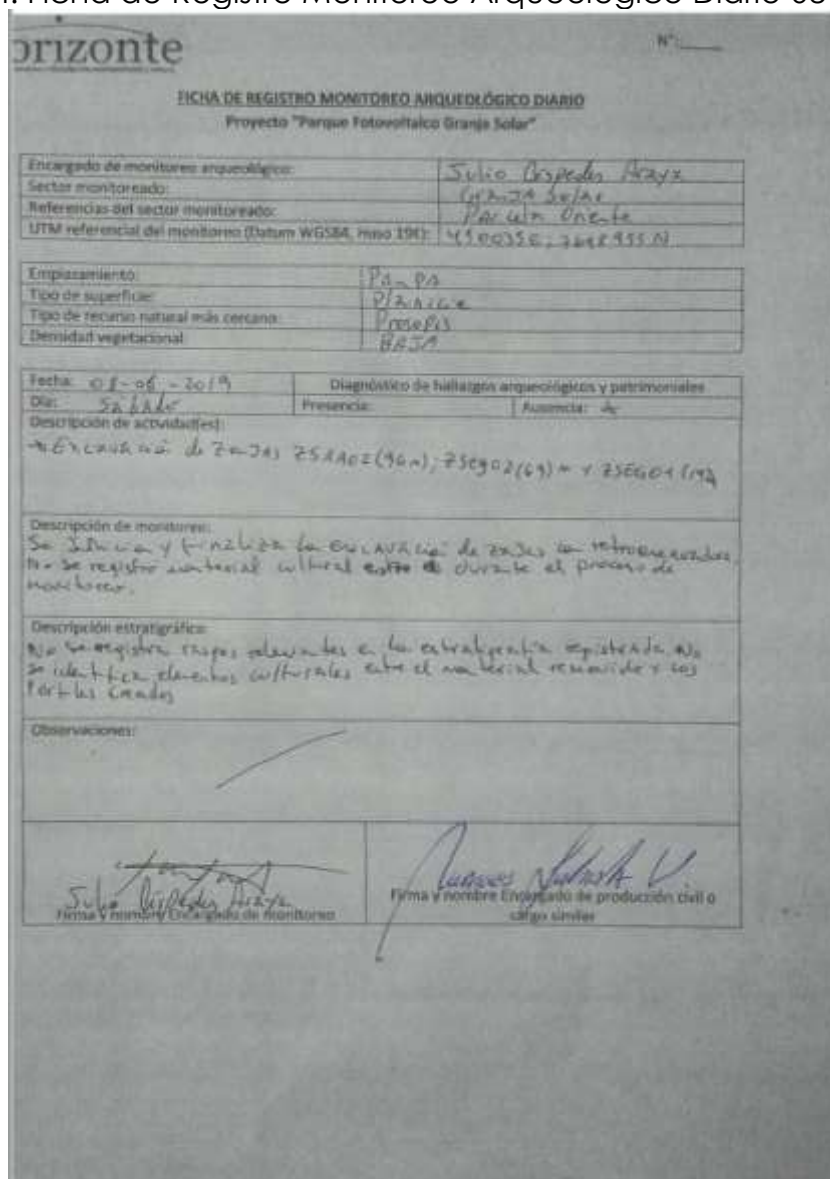 Ficha de Registro Monitoreo Arqueológico Diario
orizonte
N°:
FICHA DE REGISTRO MONITOREO ARQUEOLÓGICO DIARIO
Proyecto "Parque Fotovoltaico Granja Solar"
Encargado de monitoreo arqueológico: Julio Céspedes Araya
Sector monitoreado: GRANJA Solar
Referencias del sector monitoreado: Oriente
UTM referencial del monitoreo (Datum WGS84, Huso 19K):
Emplazamiento: Pampa
Tipo de superficie: Planicie
Tipo de recurso natural más cercano: Prosopis
Densidad vegetacional: BAJA
Fecha: 08-06-2019 Diagnóstico de hallazgos arqueológicos y patrimoniales
Día: Sábado Presencia: Ausencia:
Descripción de actividad(es):
Excavación de zanjas
Descripción de monitoreo:
Se Inicia y finaliza la excavación de zanjas con retroexcavadora.
No se registro material cultural durante el proceso de
monitoreo.
Descripción estratigráfica:
No se registra rasgos relevantes en la estratigrafía registrada. No
se identifica elementos culturales entre el material removido y los
Perfiles creados
Observaciones:
Julio Céspedes Araya
Firma y nombre Encargado de monitoreo
Firma y nombre Encargado de producción civil o
cargo similar